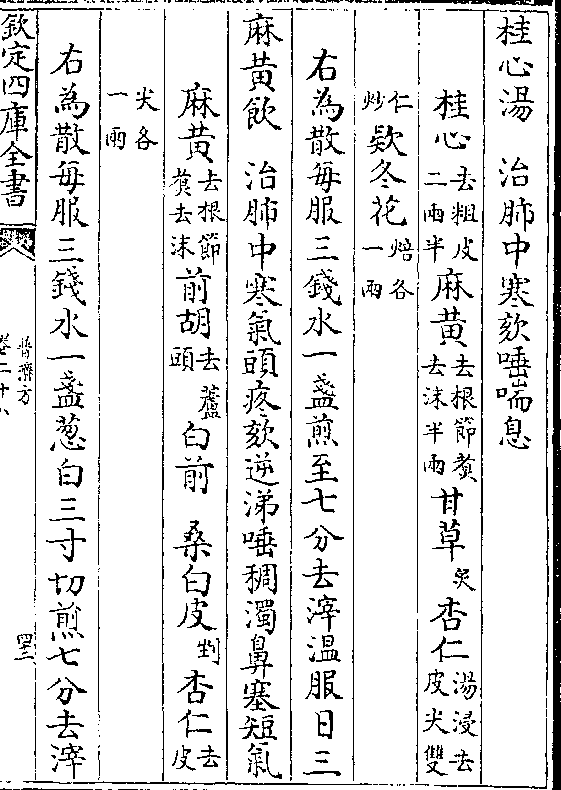 桂心湯　治肺中寒欬唾喘息
桂心去粗皮二兩半麻黄去根節煑去沫半兩甘草炙杏仁湯浸去皮尖雙
仁炒欵冬花焙各一兩
右為散每服三錢水一盞煎至七分去滓温服日三
麻黄飲　治肺中寒氣頭疼欬逆涕唾稠濁鼻塞短氣
麻黄去根節煑去沫前胡去蘆頭白前　桑白皮剉杏仁去皮
尖各一兩
右為散每服三錢水一盞葱白三寸切煎七分去滓
欽定四庫全書
普濟方
卷二十八
四二